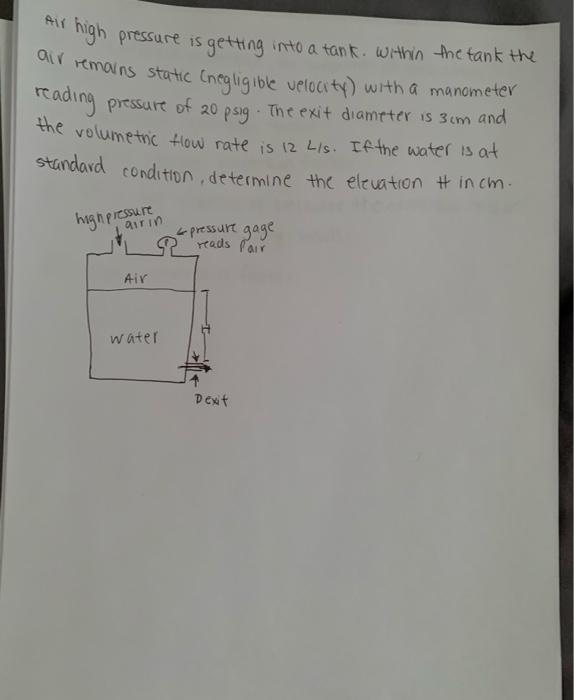 Air high pressure is getting into a tank. Within the tank the
air remains static (negligible velocity) with a manometer
reading pressure of 20 psig. The exit diameter is 3cm and
the volumetric flow rate is 12 L/s. If the water is at
standard condition, determine the elevation H in cm.
high pressure
air in
pressure gage
reads Pair
Air
water
H
Dexit